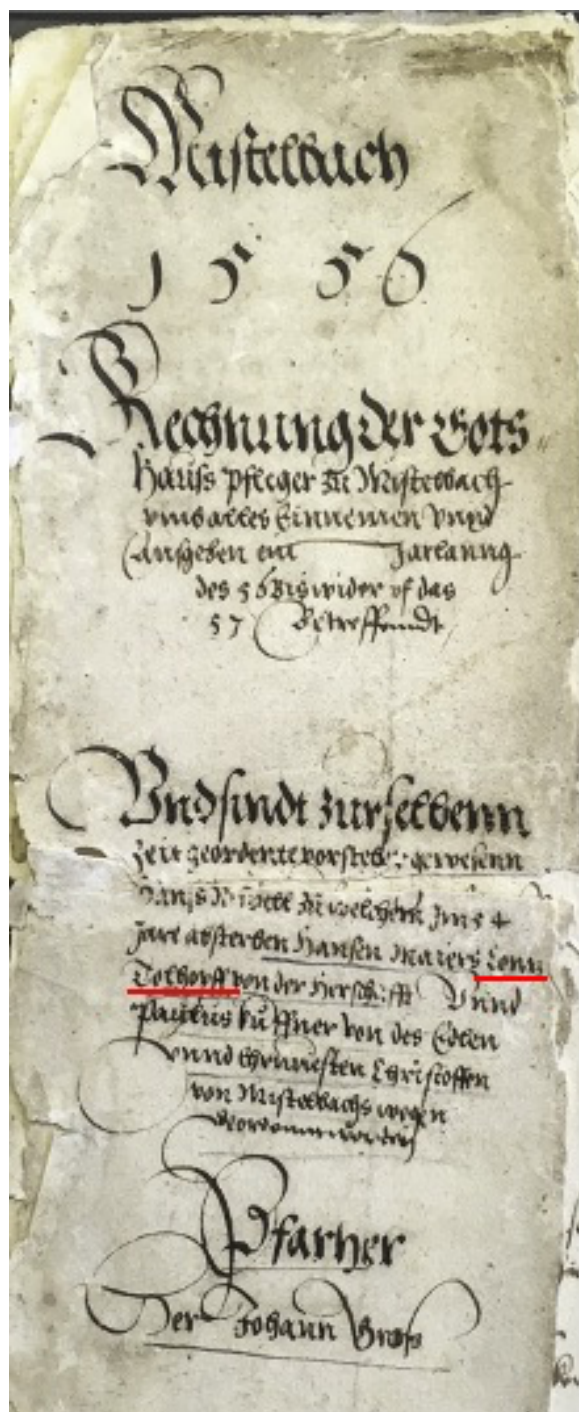 Mistelbach
1556
Rechnung der Gots
hauss pfleger zu Mistelbach
umb alles Einnemen Unnd
Ausgeben ein Jarlanng
des 56 bis wider uf das
57 Betreffendt
Unnd sindt zurselbenn
Zeit geordente vorsteer gewesenn
Hanns zu welchem Im 54
Jare absterben Hansen Maiers vonn
Tolhoff von der Herschafft Unnd
Paulus Kuffner von des Edlen
unnd Ehrnuesten Christoffen
von Mistelbachs wegen
Pfarher
Her Johann Gross